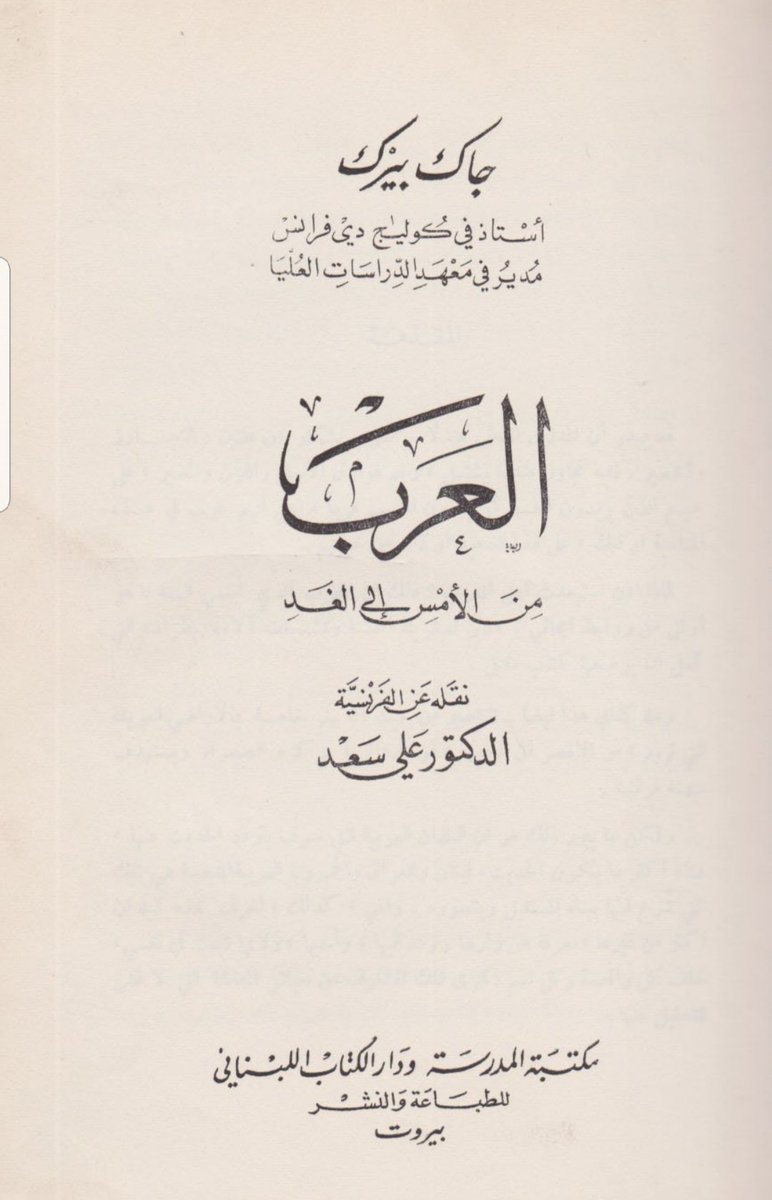 جاك بيرك
أستاذ في كوليج دي فرانس
مدير في معهد الدراسات العليا
العرب
من الأمس إلى الغد
نقله عن الفرنسية
الدكتور علي سعد
مكتبة المدرسة ودار الكتاب اللبناني
للطباعة والنشر
بيروت